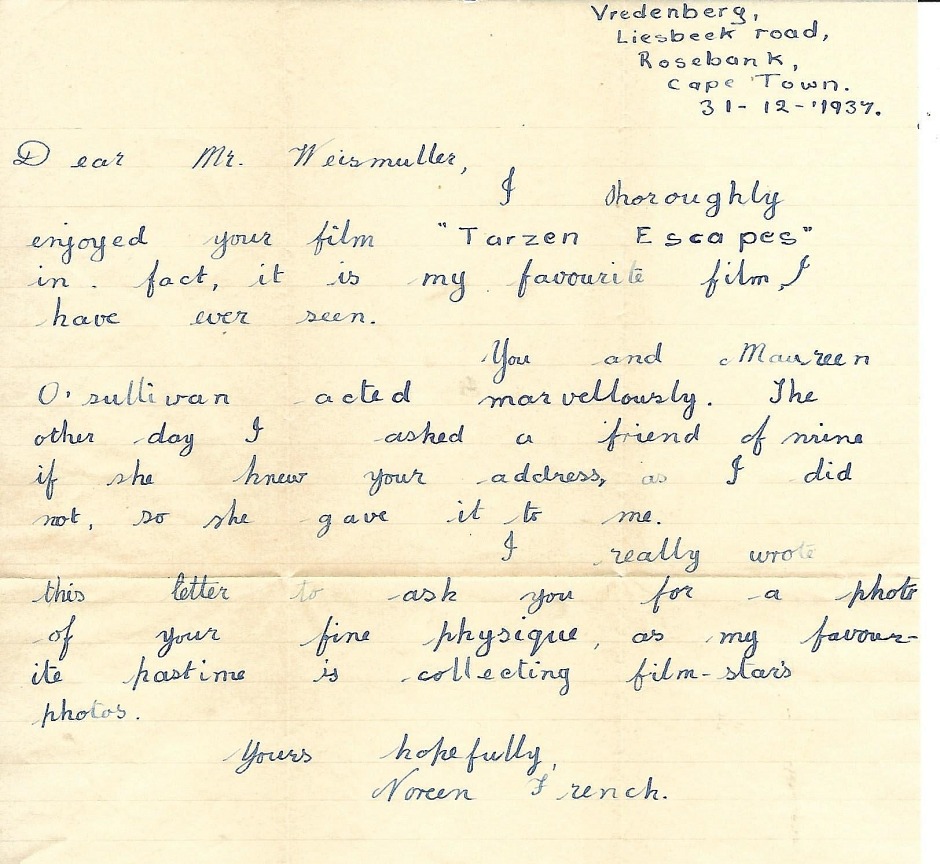 Vredenberg,
Liesbeek road,
Rosebank,
Cape Town.
31-12-'1937.
Dear Mr. Weismuller,
I thoroughly
enjoyed your film "Tarzen Escapes"
in. fact, it is my favourite film, I
have ever seen.
You and Maureen
O'sullivan acted marvellously. The
other day I asked a friend of mine
if she knew your address, as I did
not, so she gave it to me.
I really wrote
this letter to ask you for a photo
of your fine physique, as my favour-
ite pastime is collecting film-stars
photos.
Yours hopefully,
Noreen French.